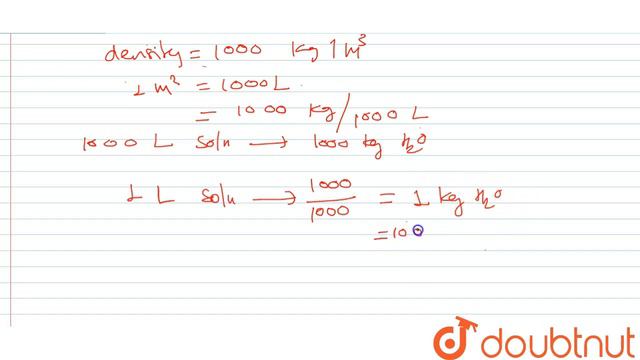 density = 1000 kg / m³
1 m³ = 1000 L
= 1000 kg/1000 L
1000 L soln → 1000 kg H₂O
1 L soln → 1000/1000 = 1 kg H₂O
= 100
doubtnut